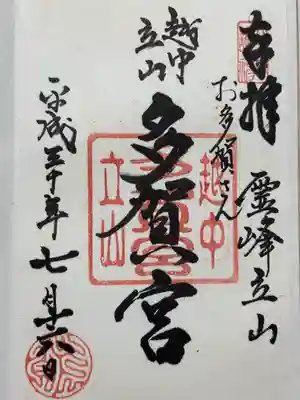 奉拝 霊峰立山
お多賀さん
越中
立山
多賀宮
平成三十年七月十六日
越中
立山